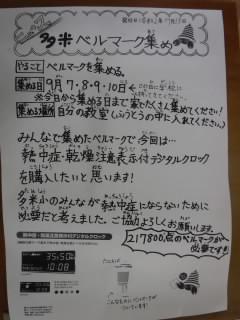 多米ベルマーク集め
やること ベルマークを集める。
集める日 9月7・8・9・10日
※今日から集める日まで家でたくさん集めてください！
集める場所 自分の教室(ふうとうの中に入れてください。)
みんなで集めたベルマークで今回は…
熱中症・乾燥注意表示付デジタルクロック
を購入したいと思います！
多米小のみんなが熱中症にならないために
必要だと考えました。ご協力よろしくお願いします。
217800点のベルマークが
必要です!!